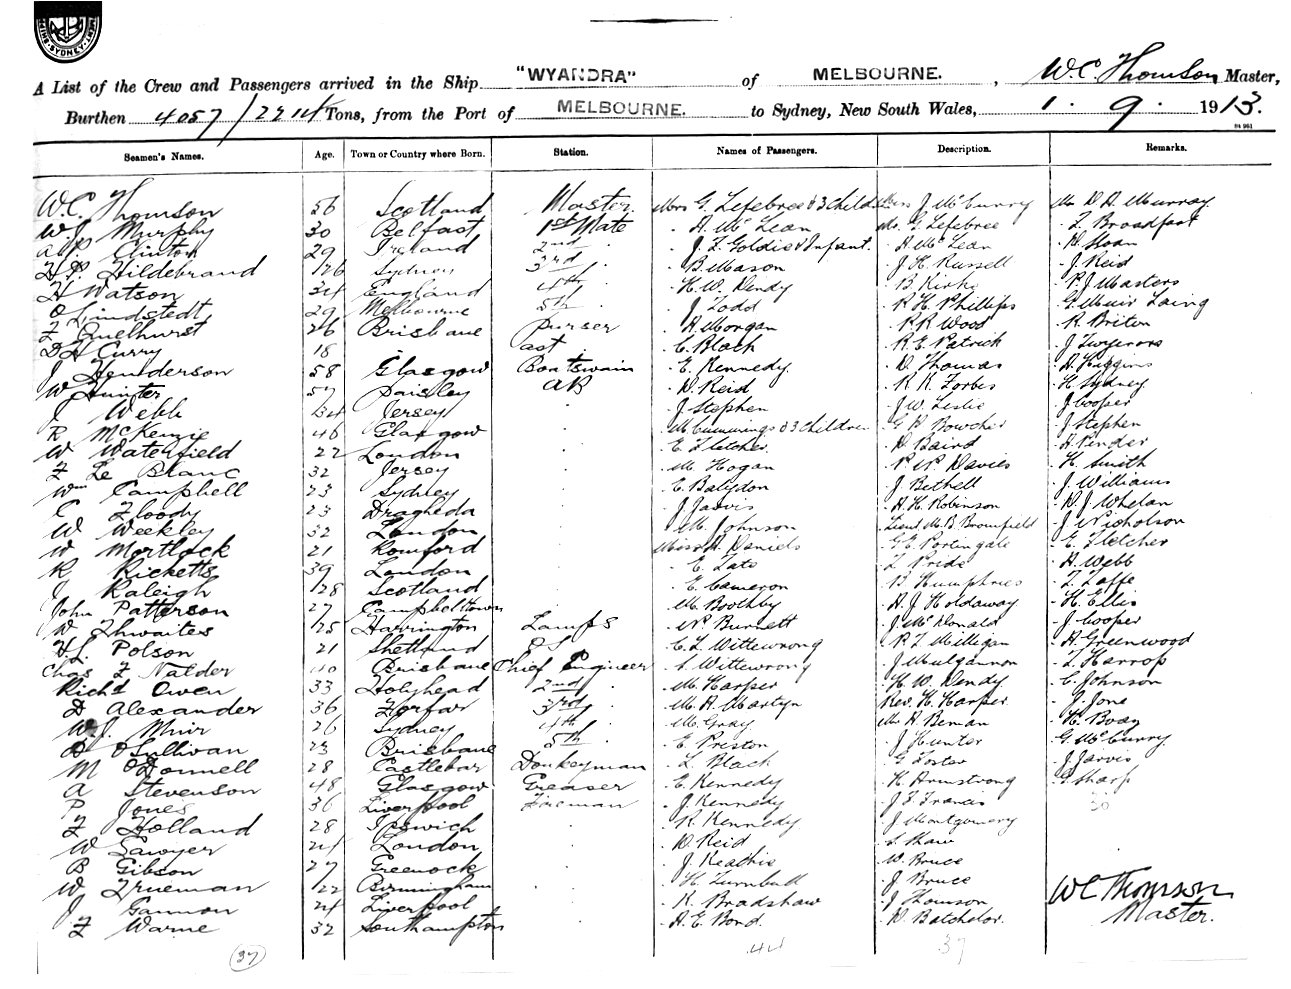 A List of the Crew and Passengers arrived in the Ship "WYANDRA" of MELBOURNE. , W.C. Thomson Master,
Burthen 4057/2214 Tons, from the Port of MELBOURNE. to Sydney, New South Wales, 1. 9. 1913.
Seamen's Names. Age. Town or Country where Born. Station. Names of Passengers. Description. Remarks.
W.C. Thomson 56 Scotland Master Mrs G. Lefebree & 3 Child J McCurry Mr D. A. Murray
W.J. Murphy 30 Belfast 1st Mate A. McLean Mr. G. Lefebree Z. Broadfoot
Clinton 29 Ireland 2nd J. Z. Goldie & Infant A McLean H. Sloan
Z.P. Hildebrand 26 Sydney 3rd B. Mason J H. Russell J. Reid
H Watson 34 England 4th H. W. Dendy B. Kirke P J Masters
O Lindstedt 29 Melbourne 5th J Todd R H. Phillips G. Muir Laing
Z Quelhurst 26 Brisbane Purser A. Morgan R R Wood R. Briton
D H Curry 18 Asst C. Black R. E. Patrick J
J Henderson 58 Glasgow Boatswain E. Kennedy D. Thomas A. Higgins
W Hunter 57 Paisley AB D. Reid R. K. Forbes H. Sydney
J Webb 34 Jersey J. Stephen J. W. Leslie J. Cooper
R McKenzie 46 Glasgow M Cummings & 3 Children G. P. Bowcher J. Stephen
W Waterfield 22 London E. Fletcher D. Baird A. Pender
Z Le Blanc 32 Jersey M. Hogan P. N. Davies H. Smith
Wm Campbell 23 Sydney E. Batydon J. Bethell J. Williams
C Floody 23 Drogheda J. Jarvis A. H. Robinson D. J. Whelan
W Weekley 32 London M. Johnson Lieut. M. B. Bromfield J. Nicholson
W Mortlock 21 Romford Miss A. Daniels G. E. Portingale E. Fletcher
R Ricketts 39 London E. Tats L. Pride A. Webb
J Raleigh 28 Scotland E. Cameron B. Humphries Z. Laffe
John Patterson 27 Campbeltown M. Boothby A. J. Holdaway H. Ellis
W Thwaites 25 Harrington Lamps N. Burnett J. McDonald J. Cooper
H.L. Polson 21 Shetland OS C. L. Wittewrong R. L. Milligan A. Greenwood
Chas Z Nalder 40 Brisbane Chief Engineer S. Wittewrong J. Mulgannon Z. Harrop
Richd Owen 33 Holyhead 2nd M. Harper H. W. Dendy C. Johnson
D Alexander 36 Forfar 3rd M. A. Martyn Rev. H. Harper J. Jone
W.J. Muir 26 Sydney 4th M. Gray Mr A. Beman H. Boag
D O'Sullivan 23 Brisbane 5th E. Preston J. Hunter G. McCurry
M O'Donnell 28 Castlebar Donkeyman L. Black G. Foster J. Jarvis
A Stevenson 48 Glasgow Greaser E. Kennedy H. Armstrong G. Sharp
P Jones 36 Liverpool Fireman J. Kennedy J. Z. Francis 30
Z Holland 28 Ipswich R. Kennedy J. Montgomery
W Sawyer 24 London D. Reid S. Shaw
B Gibson 27 Greenock J. Keathie W. Bruce
W Trueman 22 Birmingham H. Turnbull J. Bruce WC Thomson
J Gannon 24 Liverpool R. Bradshaw J. Thomson Master.
Z Warne 32 Southampton A. E. Bond. D. Batchelor.
37 44 37